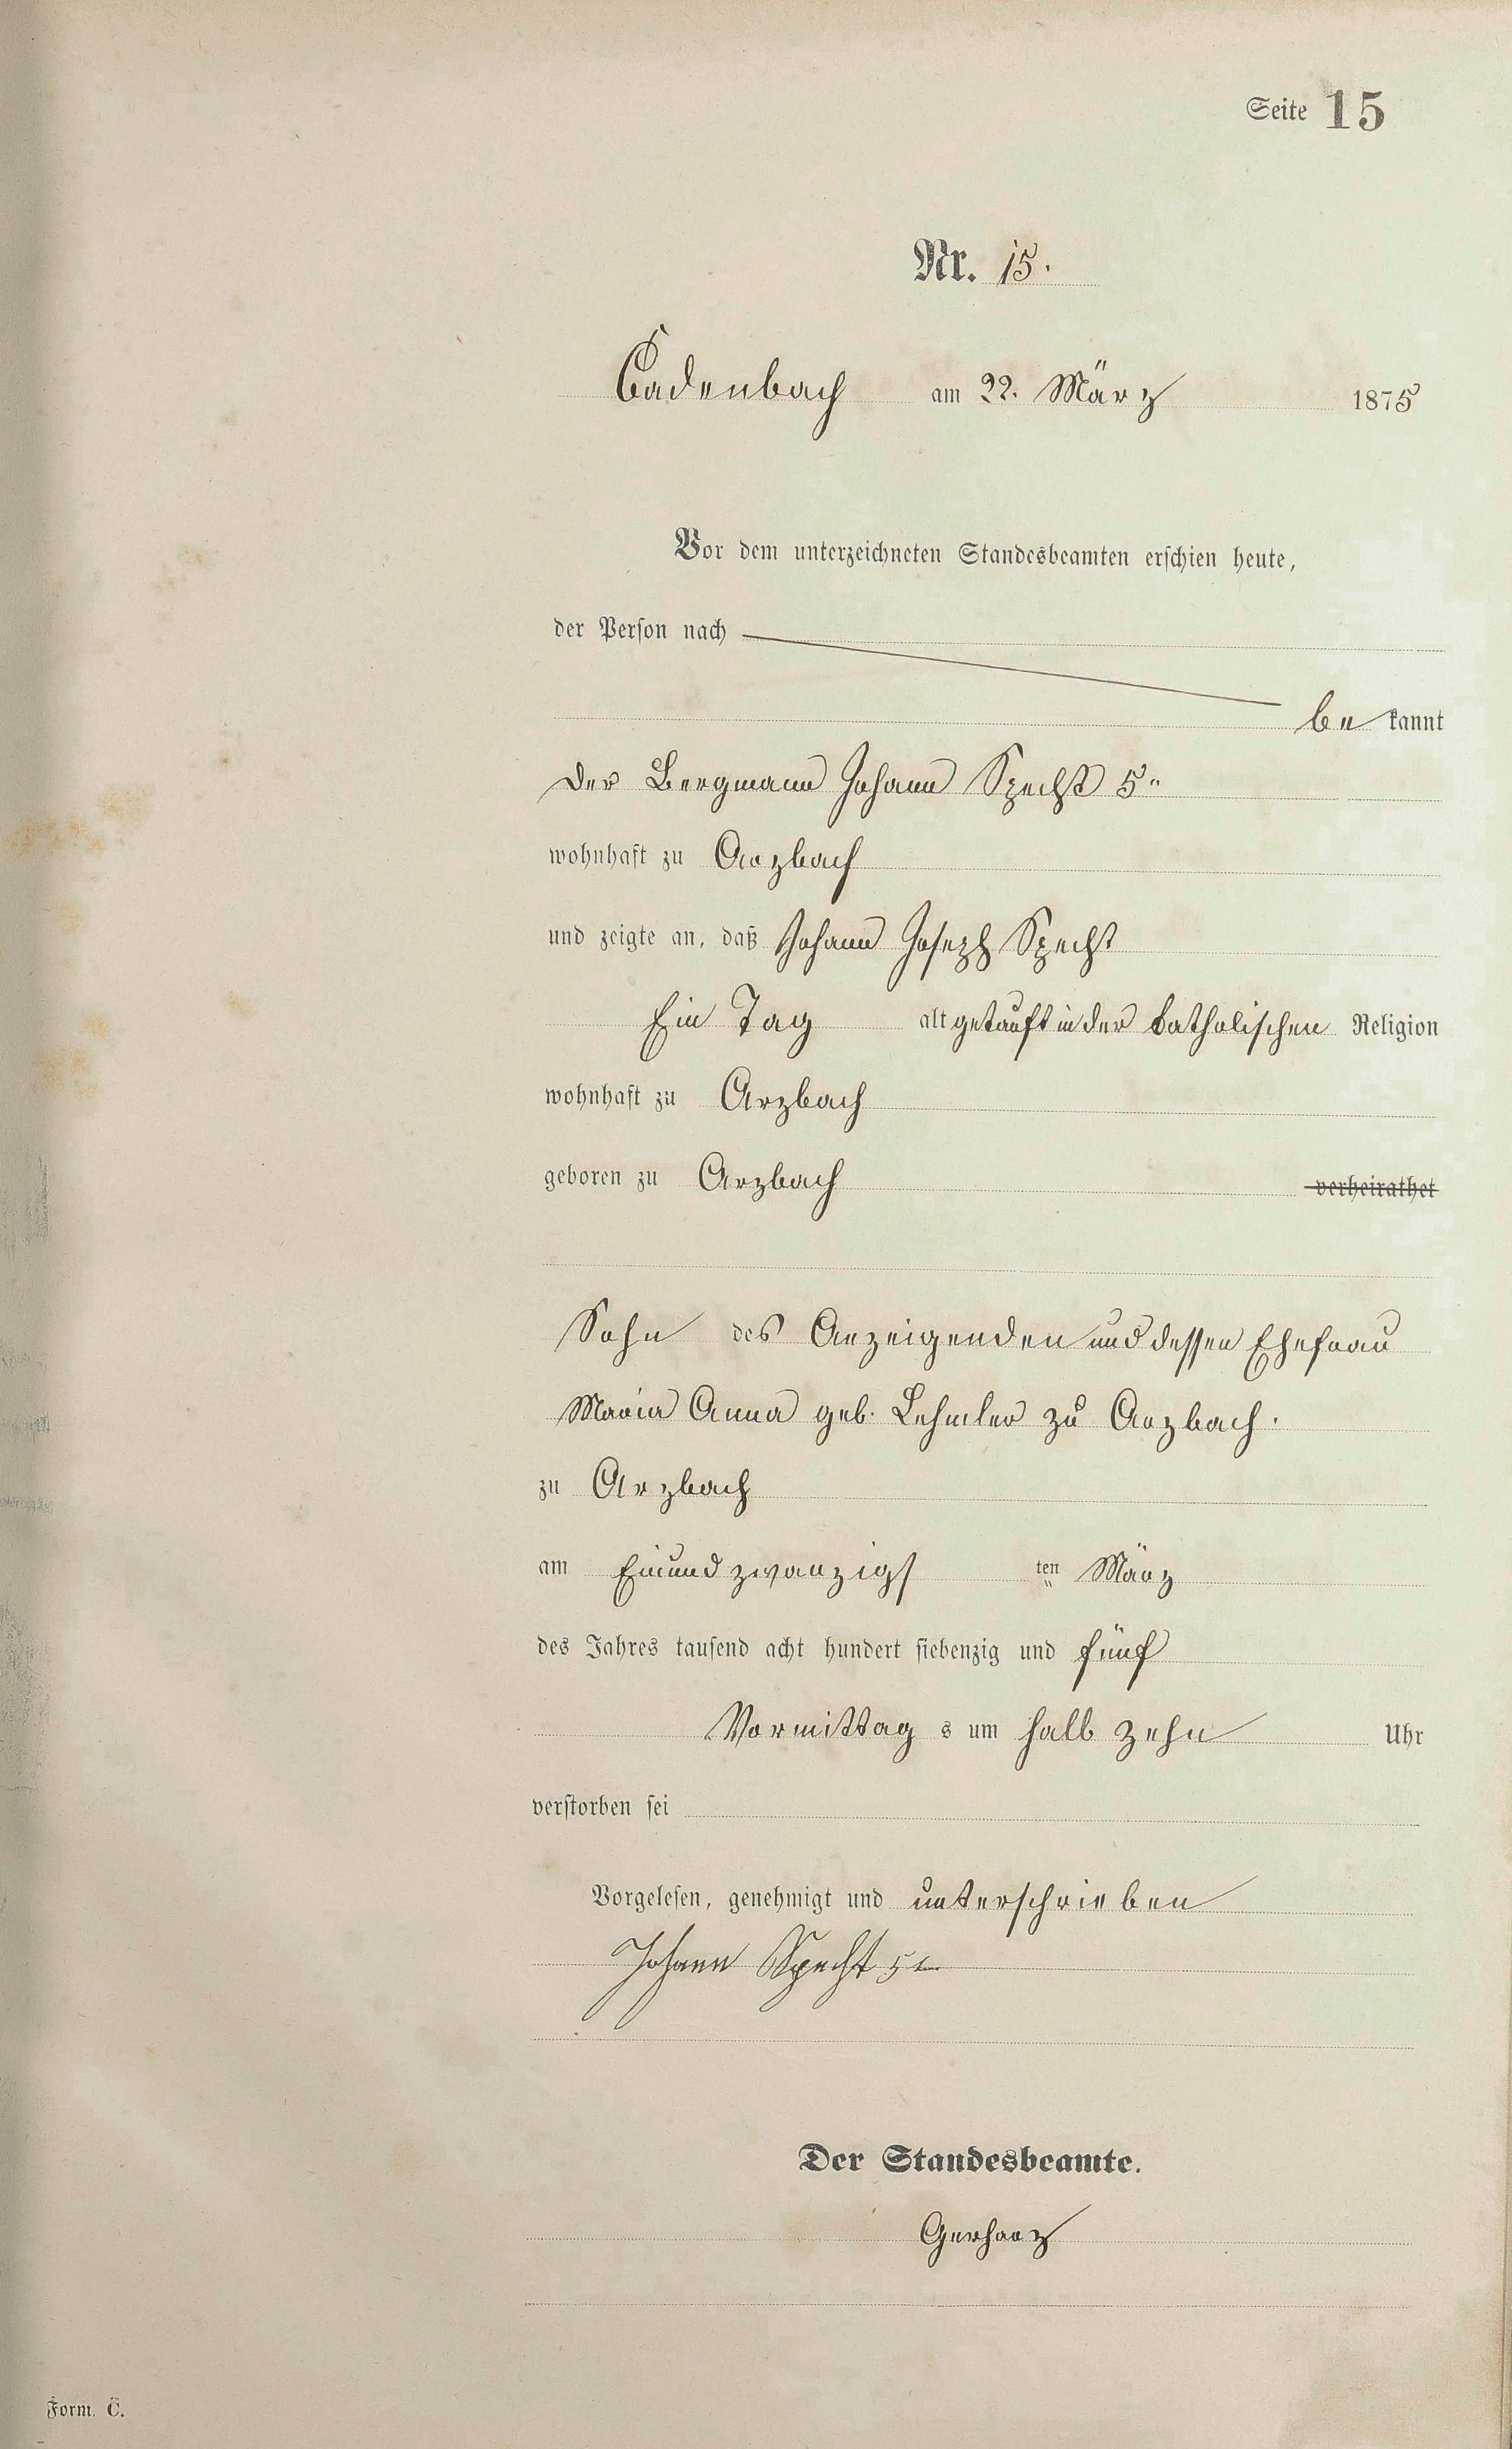 Seite 15
Nr. 15.
Cadenbach am 22. März 1875
Vor dem unterzeichneten Standesbeamten erschien heute,
der Person nach
be kannt
der Bergmann Johann Specht 5r
wohnhaft zu Arzbach
und zeigte an, daß Johann Joseph Specht
Ein Tag alt getauft in der katholischen Religion
wohnhaft zu Arzbach
geboren zu Arzbach verheirathet
Sohn des Anzeigenden und dessen Ehefrau
Maria Anna geb. Lehmler zu Arzbach.
zu Arzbach
am Einundzwanzigs ten März
des Jahres tausend acht hundert siebenzig und fünf
Vormittag s um halb zehn Uhr
verstorben sei
Vorgelesen, genehmigt und unterschrieben
Johann Specht 5t
Der Standesbeamte.
Gerharz
Form. C.